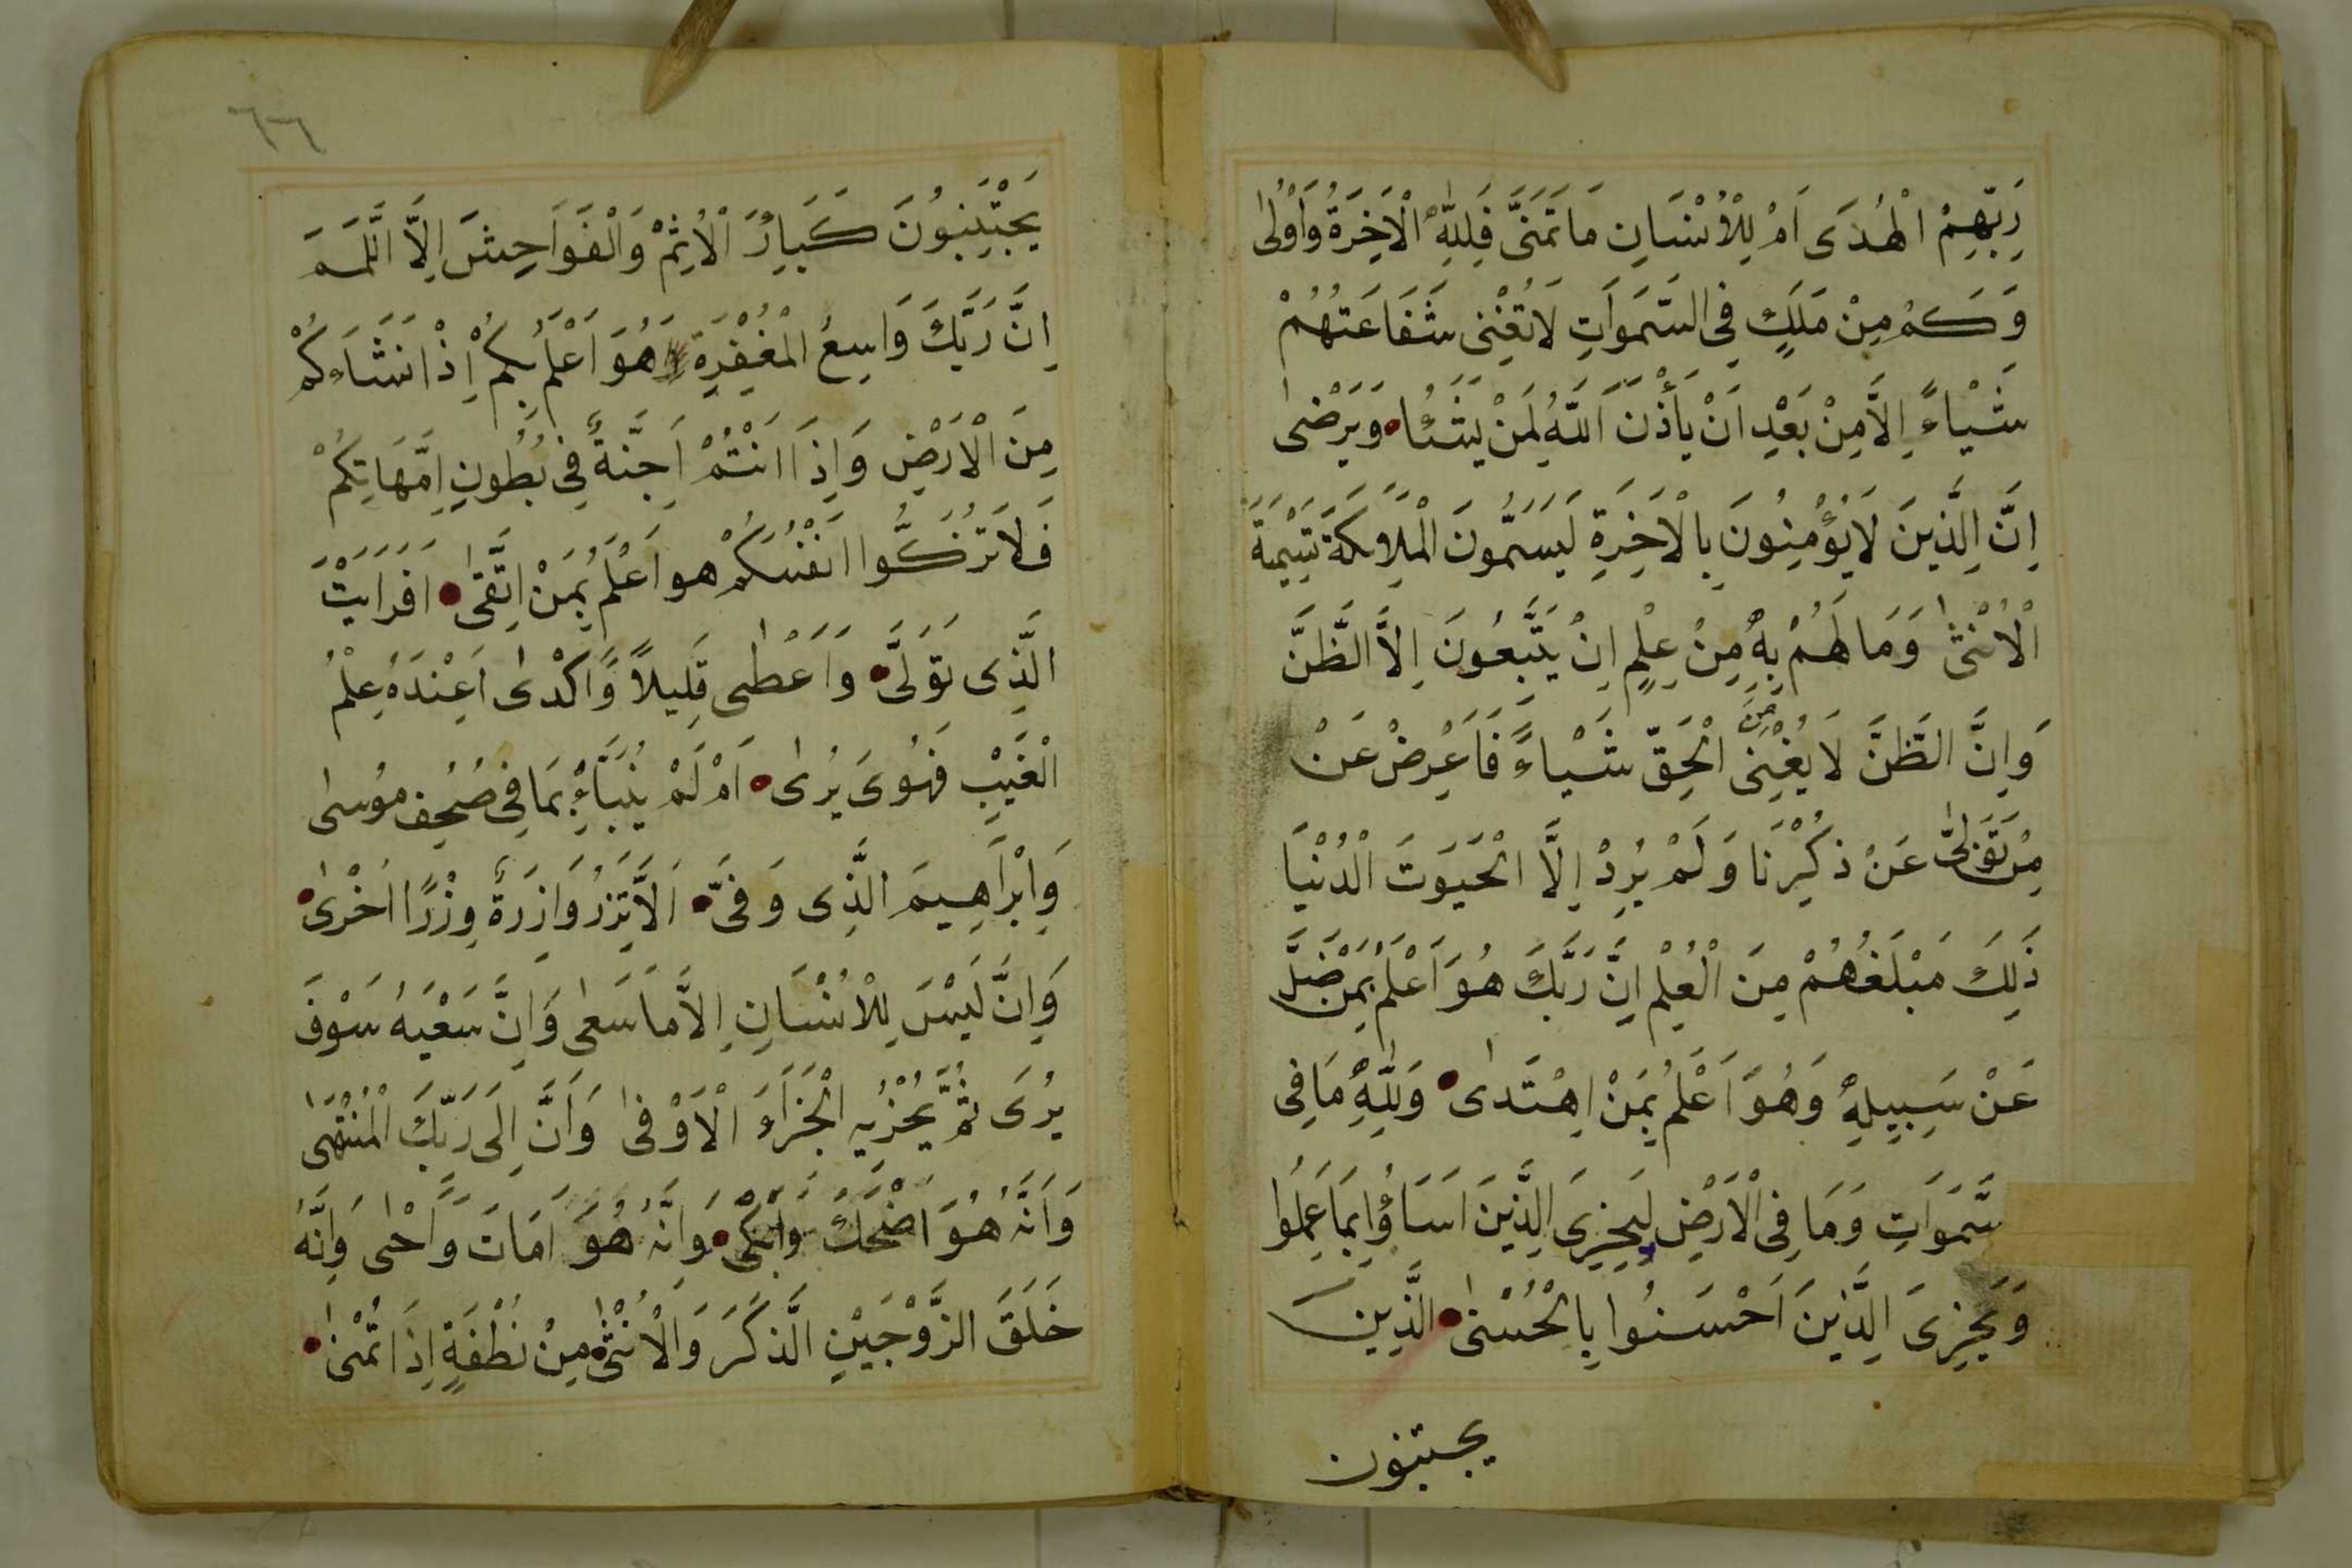 رَبِّهِمْ الْهُدَى اَمْ لِلْاُنْسَانِ مَا تَمَنَّى فَلِلّٰهِ الْاٰخِرَةُ وَاُوْلٰى
وَكَمْ مِنْ مَلَكٍ فِى السَّمَوَاتِ لَا تُغْنِىْ شَفَاعَتُهُمْ
شَيْاءً اِلَّا مِنْ بَعْدِ اَنْ يَأْذَنَ اللّٰهُ لِمَنْ يَشَاُ وَيَرْضٰى
اِنَّ الَّذِينَ لَا يُؤْمِنُونَ بِالْاَخِرَةِ لَيَسَمُّونَ الْمَلَاِئكَةَ تَسْمِيَةَ
الْاُنْثٰى وَمَا لَهُمْ بِهِ مِنْ عِلْمٍ اِنْ يَتَّبِعُونَ اِلَّا الظَّنَّ
وَاِنَّ الظَّنَّ لَا يُغْنِى مِنَ الْحَقِّ شَيْاءً فَاَعْرِضْ عَنْ
مِنْ تَوَلّٰى عَنْ ذِكْرِنَا وَلَمْ يُرِدْ اِلَّا الْحَيَوتَ الْدُنْيَا
ذَلِكَ مَبْلَغُهُمْ مِنَ الْعُلِمْ اِنَّ رَبَّكَ هُوَ اَعْلَمُ بِمَنْ ضَلَّ
عَنْ سَبِيلِهِ وَهُوَ اَعْلَمُ بِمَنْ اِهْتَدٰى وَلِلّٰهِ مَا فِى
سَّمَوَاتِ وَمَا فِى الْاَرْضِ لِيَجْزِىَ الَّذِينَ اَسَاؤُا بِمَا عَمِلُوا
وَيَجْزِىَ الَّذِينَ اَحْسَنُوا بِالْحُسْنٰى الَّذِينَ
يجتنبون
٦٦
يَجْتَنِبُونَ كَبَائِرَ الْاِثِمْ وَالْفَوَاحِشَ اِلَّا اللَّمَمَ
اِنَّ رَبَّكَ وَاسِعُ الْمَغْفِرَةِ هُوَ اَعْلَمُ بِكُمْ اِذْ اَنْشَاَءكُمْ
مِنَ الْاَرْضِ وَاِذَا اَنْتُمْ اَجِنَّةٌ فِى بُطُونِ اِمَّهَاتِكُمْ
فَلَا تُزَكُّوا اَنْفُسَكُمْ هو اَعْلَمُ بِمَنْ اتَّقٰى اَفَرَاَيْتَ
الَّذِى تَوَلَّى وَاَعْطٰى قَلِيلاً وَّاَكْدٰى اَعِنْدَهُ عِلْمُ
الْغَيْبِ فَهُوَىَ يُرٰى اَمْ لَمْ يُنَبَّاءْ بِمَا فِى صُحُفِ مُوسٰى
وَاِبْرَاهِيمَ الَّذِى وَفَىَّ اَلَّا تَزِرُ وَازِرَةٌ وِزْرًا اُخْرٰى
وَاِنَّ لَيْسَ لِلْاُنْسَانِ اِلَّا مَا سَعٰى وَاِنَّ سَعْيَهُ سَوْفَ
يُرَى ثُمَّ يُجْزٰيهِ الْجَزَاءَ الْاَوْفٰى وَاَنَّ اِلَى رَبِّكَ الْمُنْتَهٰى
وَاَنَّهُ هُوَ اَضْحَكَ وَاَبْكٰى وَاِنَّهُ هُوَ اَمَاتَ وَاَحْىٰ وَاِنَّهُ
خَلَقَ الزَّوْجَيْنِ الَّذكَرَ وَالْاُنْثٰى مِنْ نُطْفَةٍ اِذَا تُمْنٰى